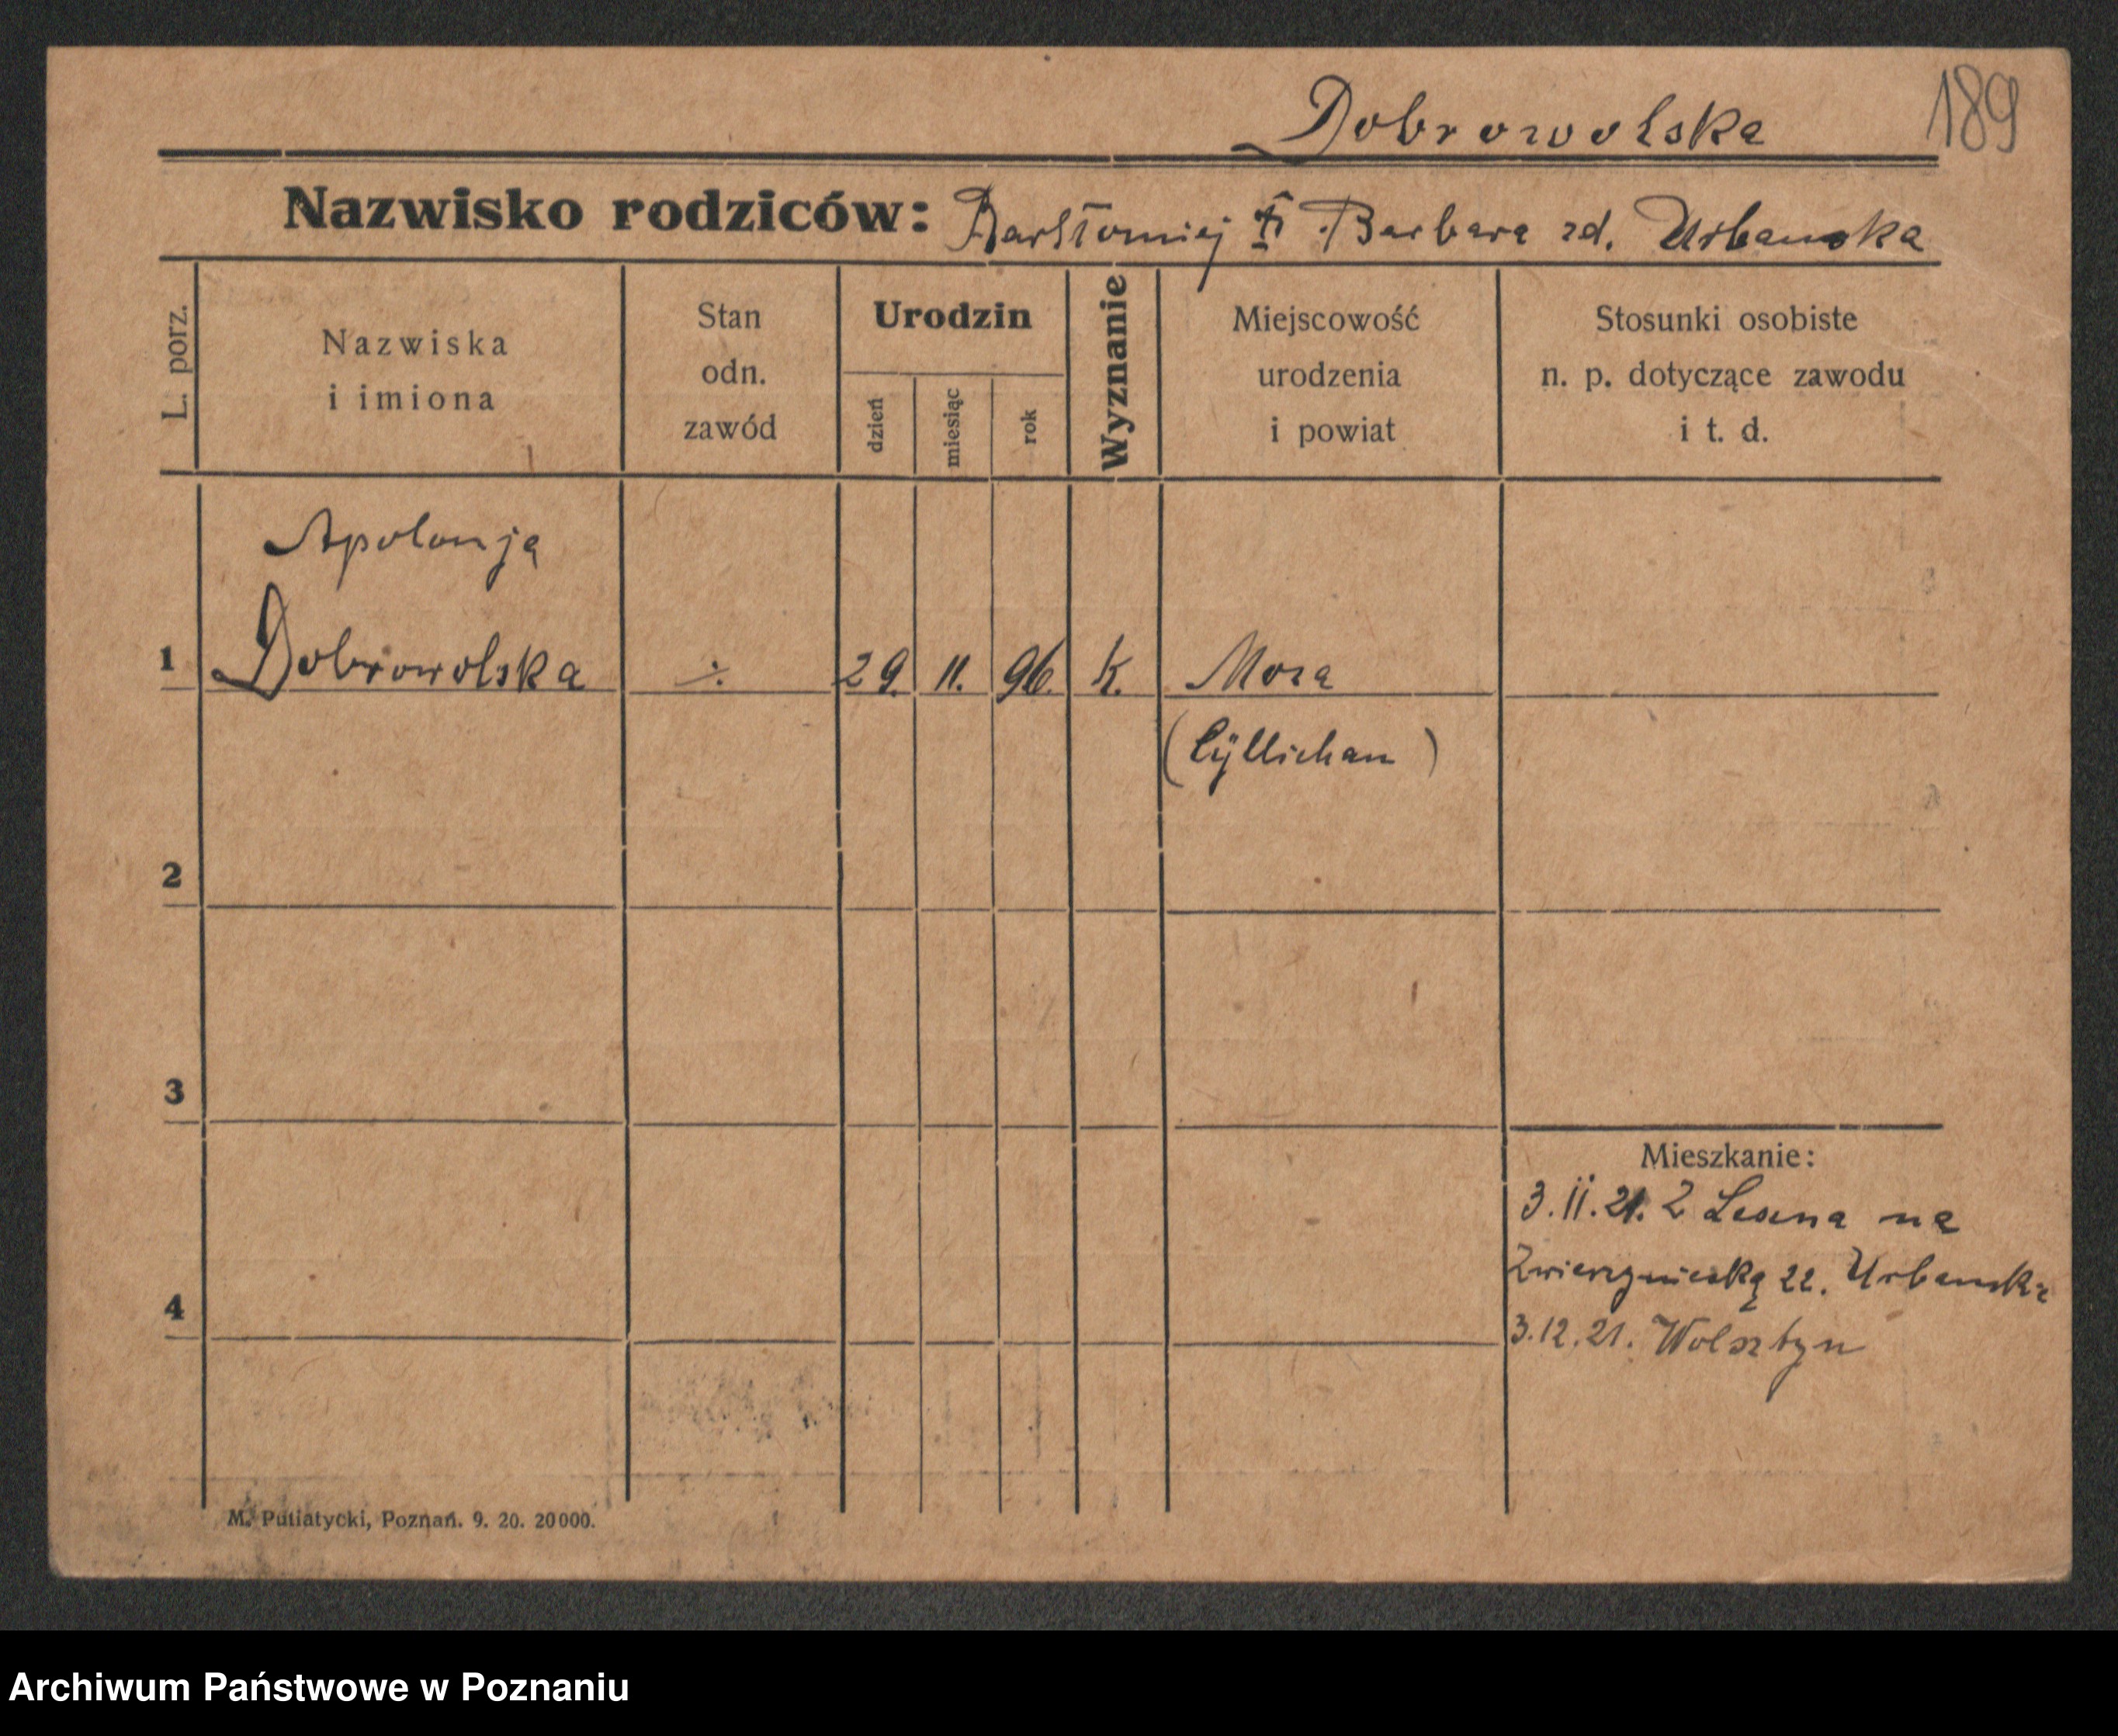 Dobrowolska
189
Nazwisko rodziców: Bartłomiej i Barbara zd. Urbanska
L. porz.
Nazwiska
i imiona
Stan
odn.
zawód
Urodzin
dzień
miesiąc
rok
Wyznanie
Miejscowość
urodzenia
i powiat
Stosunki osobiste
n. p. dotyczące zawodu
i t. d.
Apolonja
1 Dobrowolska ÷ 29. 11. 96. k. Moza
(Cÿllichau)
2
3
4
Mieszkanie:
3.II.21. Z Leszna na
Zwierzyniecką 22. Urbanska
3.12.21. Wolsztyn
M. Putiatycki, Poznań. 9. 20. 20000.
Archiwum Państwowe w Poznaniu